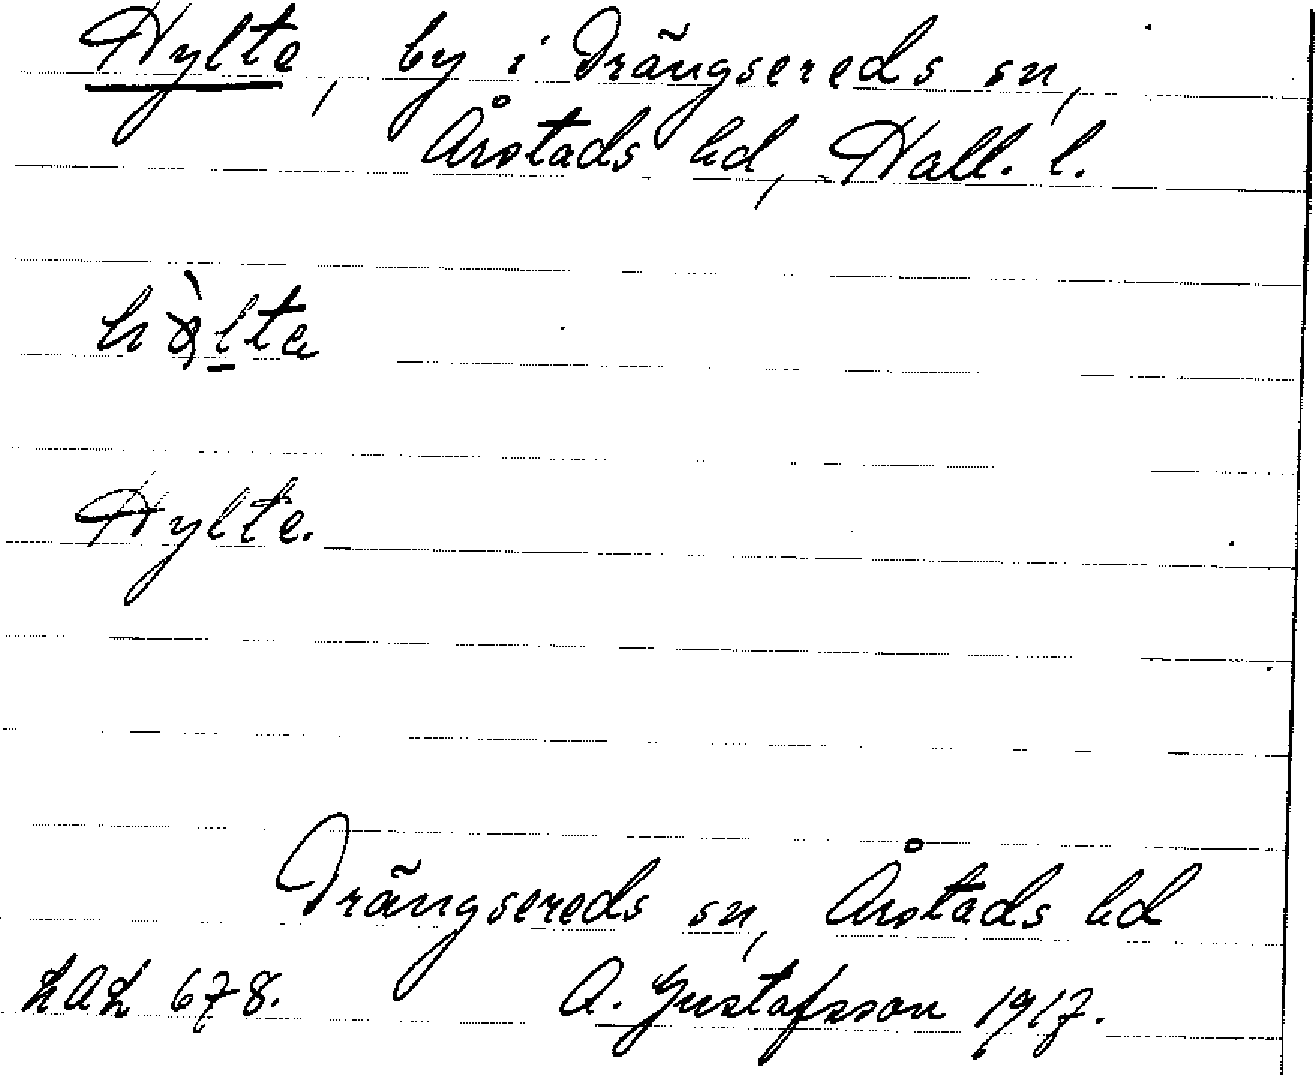 Hylte, by i Drängsereds sn,
Årstads hd, Hall. l.
Hylte.
Drängsereds sn, Årstads hd
LAL 678. A. Gustafsson 1917.